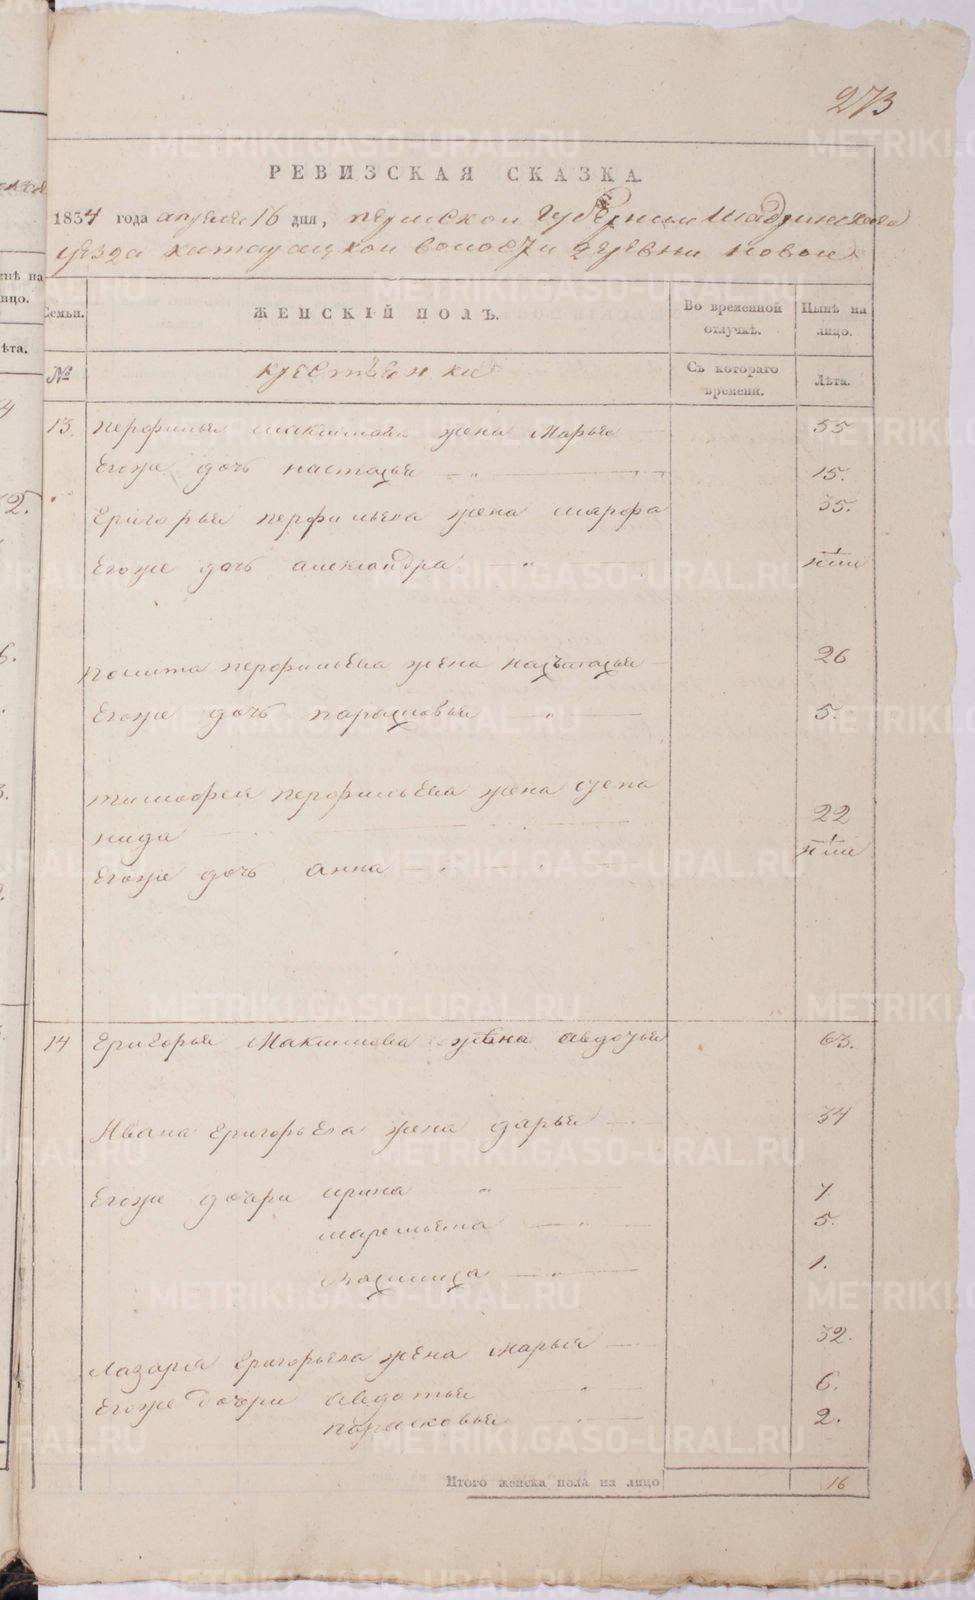 273
РЕВИЗСКАЯ СКАЗКА
1834 года апреля 16 дня, пермской губернии Шадринскаго
уезда катайской волости деревни новой
Семьи. ЖЕНСКІЙ ПОЛЪ. Во временной отлучкѣ. Нынѣ на лицо.
№ крестьянки Съ котораго времени. Лѣта.
13. перфилья максимова жена марья 55
Егоже дочь настасья " 15.
Григорья перфильева жена марфа 35.
Егоже дочь александра "
перфильева жена 26
Егоже дочь парасковья " 5.
тимофея перфильева жена степа
нида 22
Егоже дочь анна "
14 Григорья Максимова жена авдотья 63.
Ивана Григорьева жена дарья 34
Егоже дочери ирина " 7.
маремьяна " 5.
" 1.
Лазаря Григорьева жена марья 32.
Егоже дочери авдотья " 6.
парасковья " 2.
Итого женска пола на лицо 16
METRIKI.GASO-URAL.RU